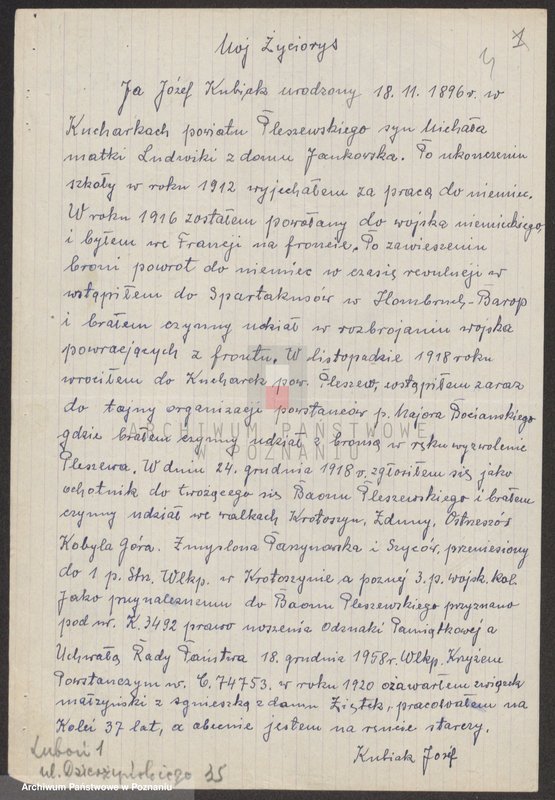 Moj Życiorys
1
4
Ja Józef Kubjak urodzony 18.11.1896r. w
Kucharkach powiatu Pleszewskiego syn Michała
matki Ludwiki z domu Jankowska. Po ukończeniu
szkoły w roku 1912 wyjechałem za pracą do niemiec.
W roku 1916 zostałem powołany do wojska niemieckiego
i byłem we Francji na froncie. Po zawieszeniu
broni powrot do niemiec w czasie rewulucji w
wstąpiłem do Spartakusów w Hombruch-Barop
i brałem czynny udział w rozbrojaniu wojska
powracjących z frontu. W listopadzie 1918 roku
wrociłem do Kucharek pow. Pleszew, wstąpiłem zaraz
do tajny organizacji powstanców p. Majora Bocianskiego
gdzie brałem czynny udział z bronią w ręku wyzwolenie
Pleszewa. W dniu 24. grudnia 1918 r. zgłosiłem się jako
ochotnik do twożącego się Baonu Pleszewskiego i brałem
czynny udział we walkach Krotoszyn, Zduny, Ostrzeszów
Kobyla Góra. Zmyslona Parzynowska i Syców, przeniesiony
do 1 p. Strz. Wlkp. w Krotoszynie a pozniej 3. p. wojsk. kol.
Jako przynależnemu do Baonu Pleszewskiego przyznano
pod nr. K.3492 prawo noszenia Odznaki Pamiątkowej a
Uchwałą Rady Państwa 18. grudnia 1958 r. Wlkp. Krzyżem
Powstanczym nr. C. 74753. w roku 1920 zawarłem związek
małzyński z agnieszką z domu Ziętek, pracowałem na
Kolei 37 lat, a obecnie jestem na rencie starczy.
Kubiak Josef
Luboń 1
ul. Dzierżyńskiego 35
ARCHIWUM PAŃSTWOWE
W POZNANIU
Archiwum Państwowe w Poznaniu